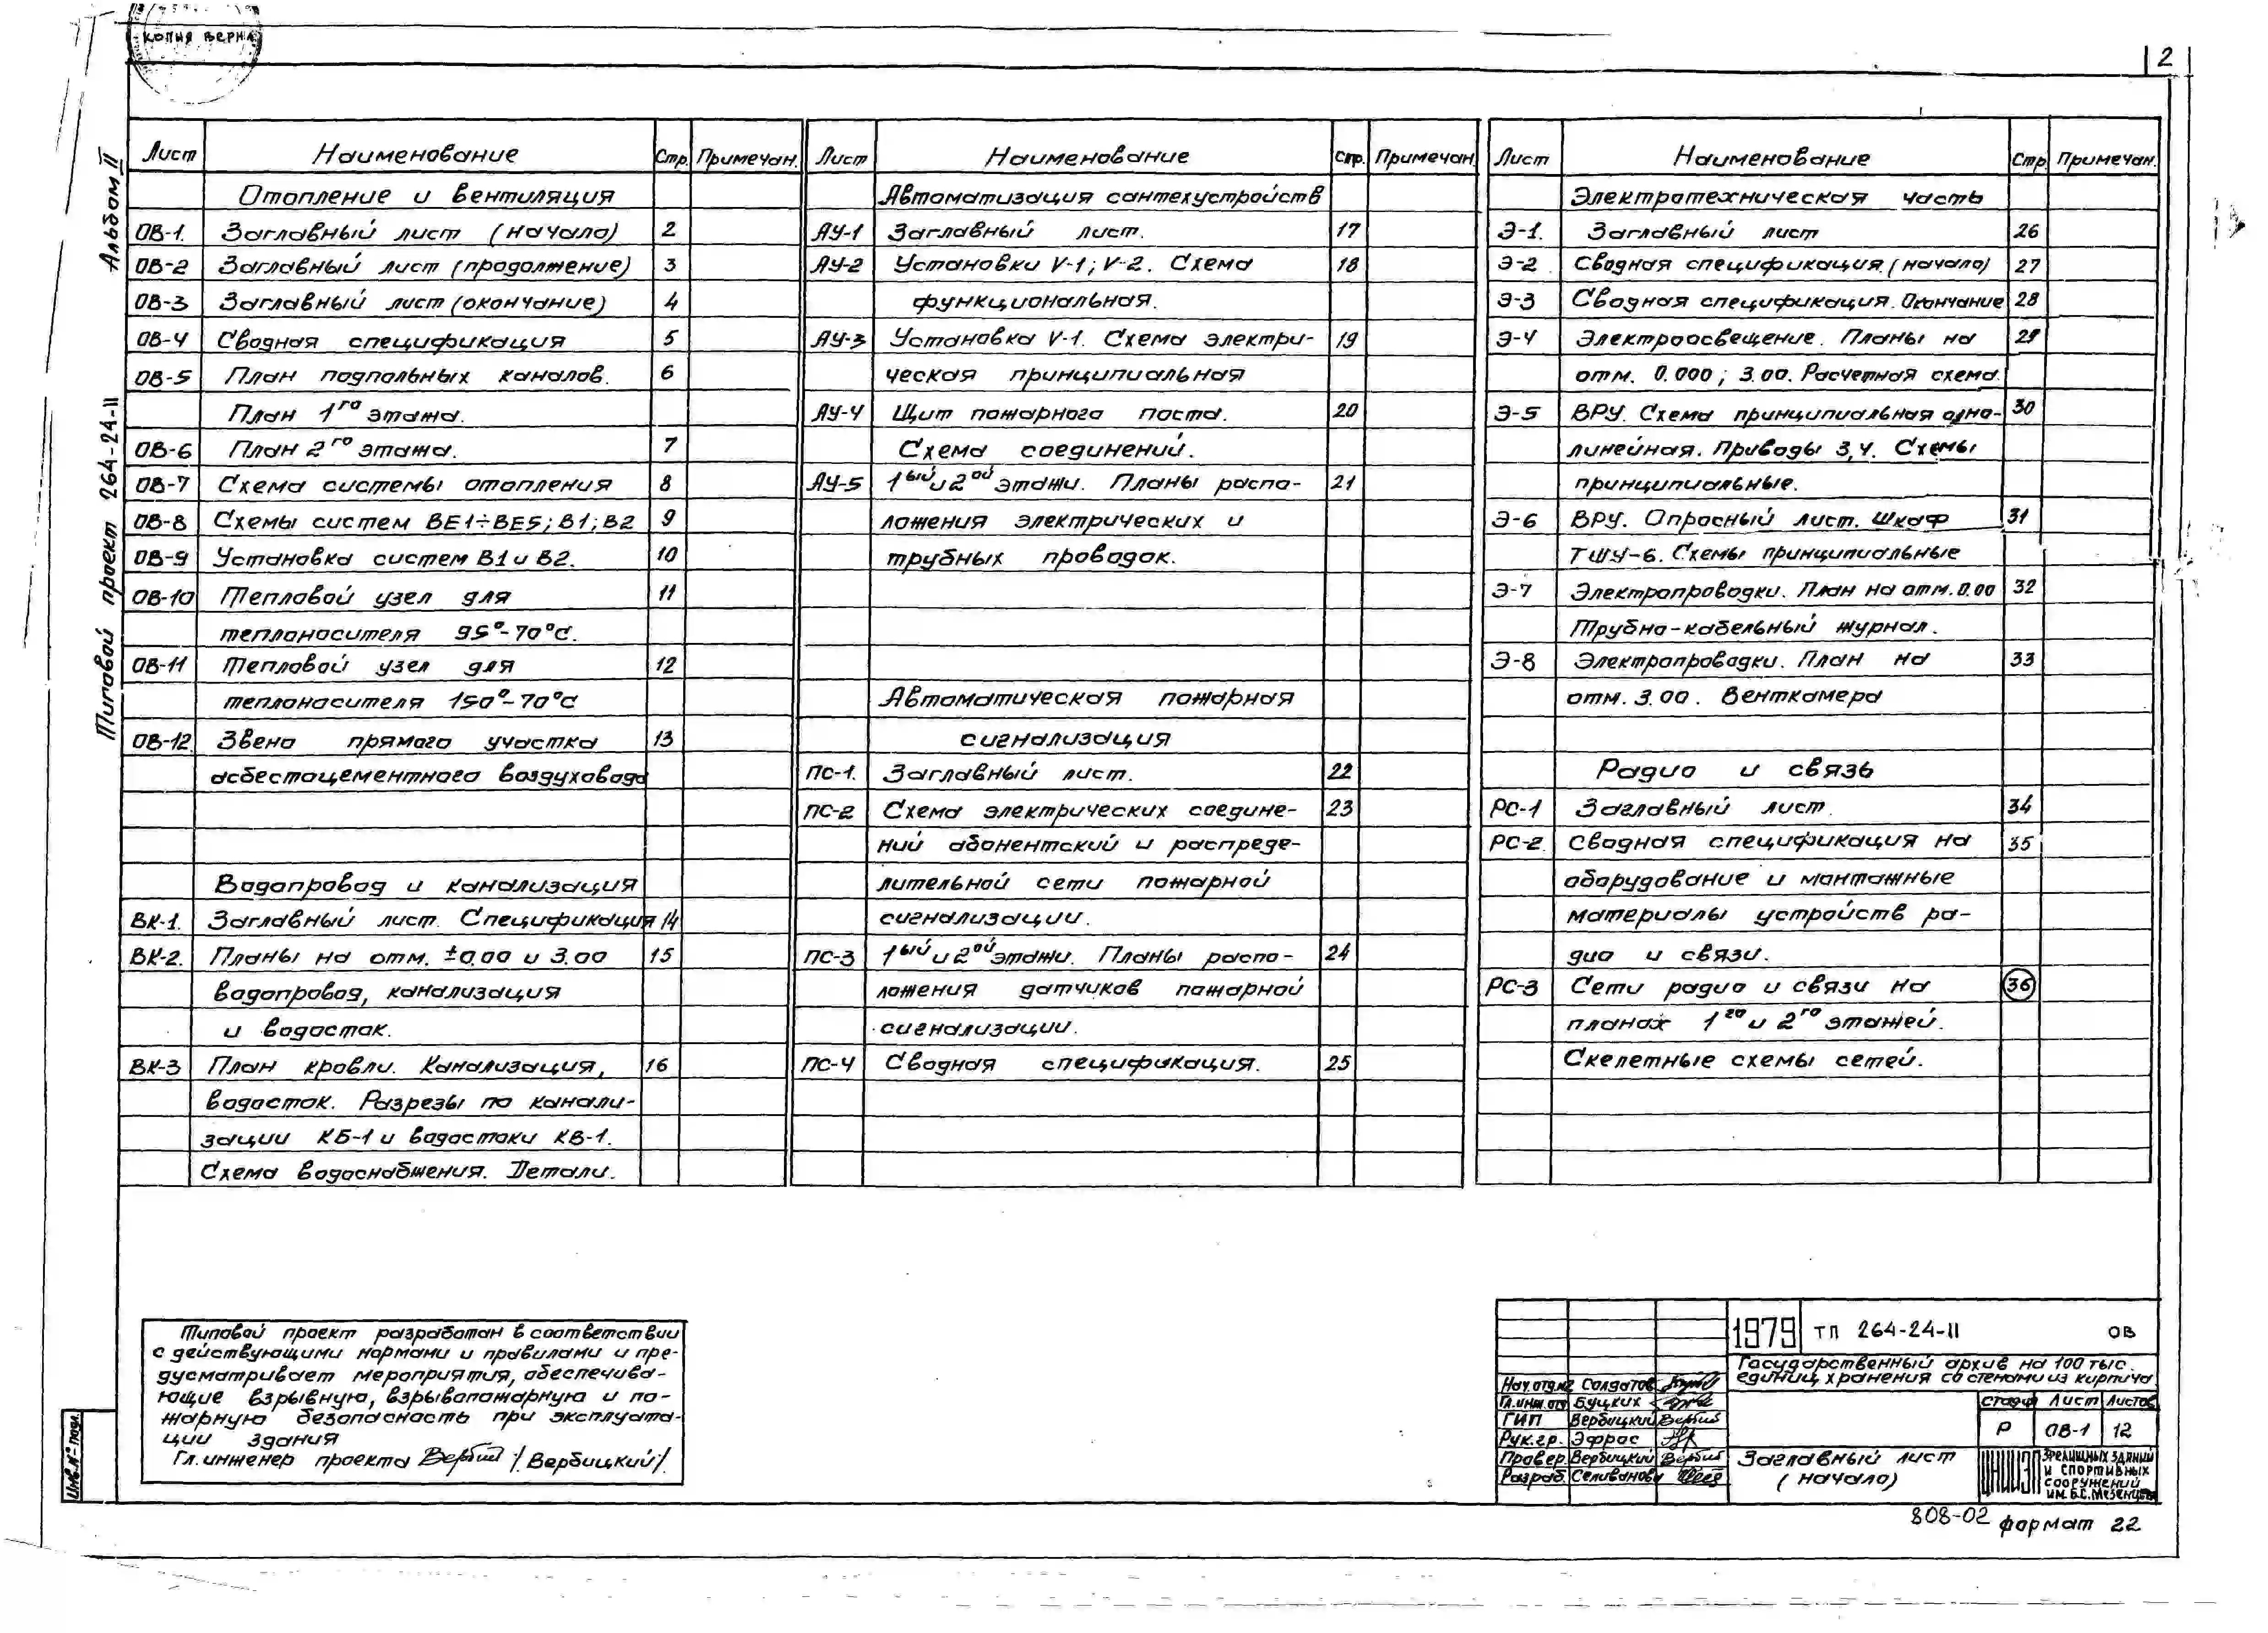 КОПИЯ ВЕРНА
2
Альбом II
Типовой проект 264-24-II
Инв.№ подл.
Лист Наименование Стр. Примечан.
Отопление и вентиляция
ОВ-1. Заглавный лист (начало) 2
ОВ-2 Заглавный лист (продолжение) 3
ОВ-3 Заглавный лист (окончание) 4
ОВ-4 Сводная спецификация 5
ОВ-5 План подпольных каналов. 6
План 1го этажа.
ОВ-6 План 2го этажа. 7
ОВ-7 Схема системы отопления 8
ОВ-8 Схемы систем ВЕ1÷ВЕ5; В1; В2 9
ОВ-9 Установка систем В1 и В2. 10
ОВ-10 Тепловой узел для 11
теплоносителя 95°-70°С.
ОВ-11 Тепловой узел для 12
теплоносителя 150°-70°С
ОВ-12 Звено прямого участка 13
асбестоцементного воздуховода
Водопровод и канализация
ВК-1. Заглавный лист. Спецификация 14
ВК-2. Планы на отм. ±0.00 и 3.00 15
водопровод, канализация
и водосток.
ВК-3 План кровли. Канализация, 16
водосток. Разрезы по канали-
зации КБ-1 и водостоки КВ-1.
Схема водоснабжения. Детали.
Лист Наименование Стр. Примечан.
Автоматизация сантехустройств
АУ-1 Заглавный лист. 17
АУ-2 Установки V-1; V-2. Схема 18
функциональная.
АУ-3 Установка V-1. Схема электри- 19
ческая принципиальная
АУ-4 Щит пожарного поста. 20
Схема соединений.
АУ-5 1ый и 2ой этажи. Планы распо- 21
ложения электрических и
трубных проводок.
Автоматическая пожарная
сигнализация
ПС-1. Заглавный лист. 22
ПС-2 Схема электрических соедине- 23
ний абонентский и распреде-
лительной сети пожарной
сигнализации.
ПС-3 1ый и 2ой этажи. Планы распо- 24
ложения датчиков пожарной
сигнализации.
ПС-4 Сводная спецификация. 25
Лист Наименование Стр. Примечан.
Электротехническая часть
Э-1. Заглавный лист 26
Э-2 Сводная спецификация. (начало) 27
Э-3 Сводная спецификация. Окончание 28
Э-4 Электроосвещение. Планы на 29
отм. 0.000; 3.00. Расчетная схема.
Э-5 ВРУ. Схема принципиальная одно- 30
линейная. Приводы 3,4. Схемы
принципиальные.
Э-6 ВРУ. Опросный лист. Шкаф 31
ТШУ-6. Схемы принципиальные
Э-7 Электропроводки. План на отм. 0.00 32
Трубно-кабельный журнал.
Э-8 Электропроводки. План на 33
отм. 3.00. Венткамера
Радио и связь
РС-1 Заглавный лист. 34
РС-2. Сводная спецификация на 35
оборудование и монтажные
материалы устройств ра-
дио и связи.
РС-3 Сети радио и связи на 36
планах 1го и 2го этажей.
Скелетные схемы сетей.
Типовой проект разработан в соответствии
с действующими нормами и правилами и пре-
дусматривает мероприятия, обеспечива-
ющие взрывную, взрывопожарную и по-
жарную безопасность при эксплуата-
ции здания
Гл. инженер проекта Вербиц /Вербицкий/.
1979 ТП 264-24-II ОВ
Государственный архив на 100 тыс.
единиц хранения со стенами из кирпича
Нач.отд.№2 Солдатов
Гл.инж.отд Буцких
ГИП Вербицкий
Рук.гр. Эфрос
Провер. Вербицкий
Разраб. Селиванова
Стадия Лист Листов
Р ОВ-1 12
Заглавный лист
(начало)
ЦНИИЭП зрелищных зданий
и спортивных
сооружений
им. Б.С. Мезенцева
808-02 формат 22